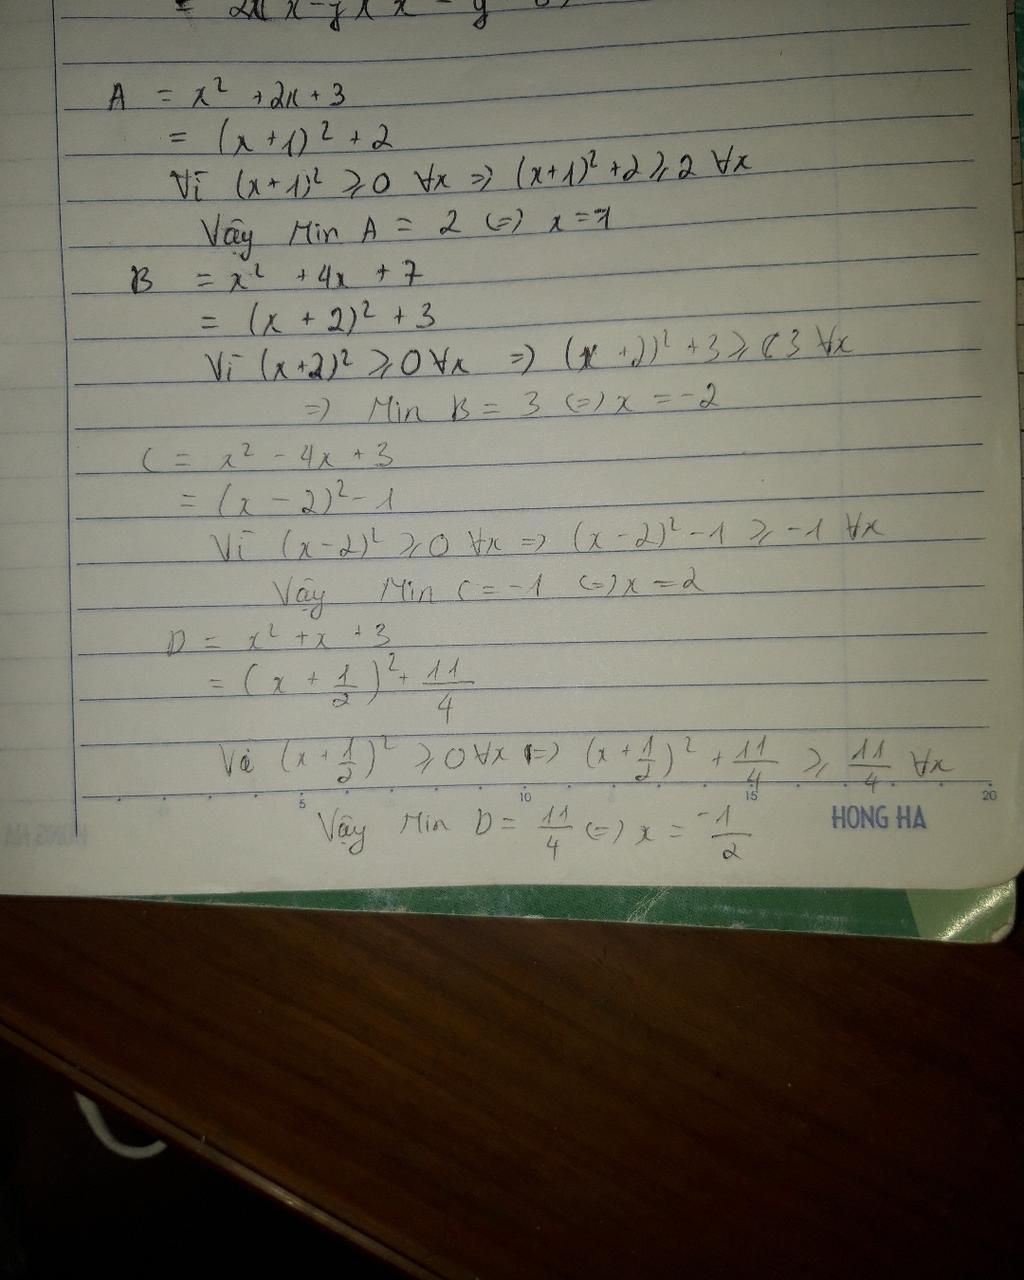 = 2x(x-y)(x-y
A = x² + 2x + 3
= (x+1)² + 2
Vì (x+1)² ≥ 0 ∀x => (x+1)² + 2 ≥ 2 ∀x
Vậy Min A = 2 <=> x = -1
B = x² + 4x + 7
= (x + 2)² + 3
Vì (x+2)² ≥ 0 ∀x => (x+2)² + 3 ≥ 3 ∀x
=> Min B = 3 <=> x = -2
C = x² - 4x + 3
= (x - 2)² - 1
Vì (x-2)² ≥ 0 ∀x => (x-2)² - 1 ≥ -1 ∀x
Vậy Min C = -1 <=> x = 2
D = x² + x + 3
= (x + 1/2)² + 11/4
Vì (x + 1/2)² ≥ 0 ∀x => (x + 1/2)² + 11/4 ≥ 11/4 ∀x
5 10 15 20
Vậy Min D = 11/4 <=> x = -1/2
HONG HA